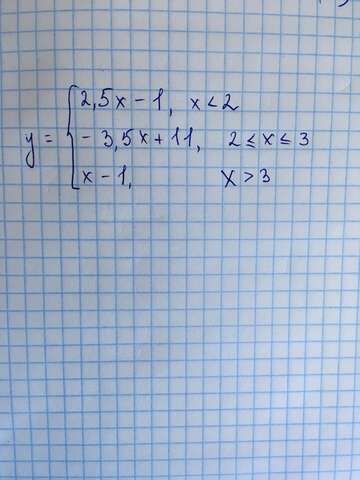 y = { 2,5x - 1, x < 2
- 3,5x + 11, 2 ≤ x ≤ 3
x - 1, x > 3